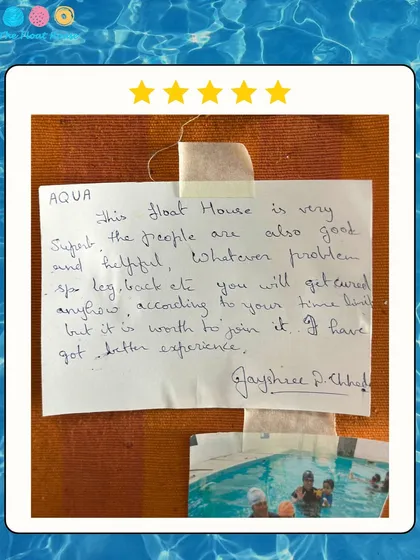 The Float House
AQUA
This Float House is very
Superb, the people are also good
and helpful, Whatever problem
sp leg, back etc you will get cured
anyhow, according to your time limit
but it is worth to join it. I have
got better experience.
Jayshree D. Chheda